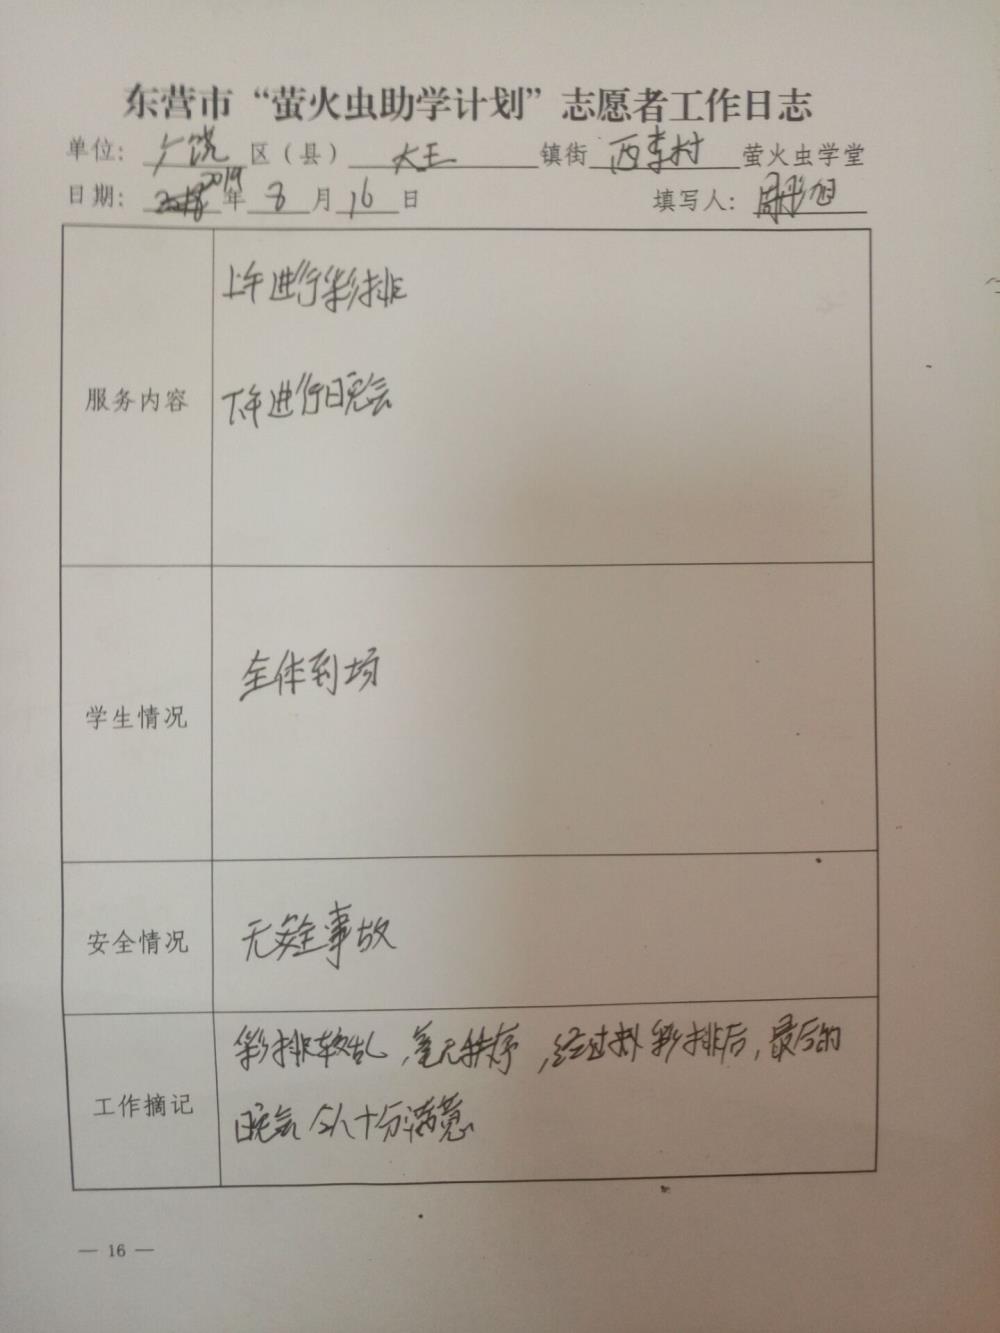 东营市“萤火虫助学计划”志愿者工作日志
单位：广饶区（县）大王镇街西李村萤火虫学堂
日期：2019年8月16日 填写人：周彤旭
服务内容
上午进行彩排
下午进行晚会
学生情况
全体到场
安全情况
无安全事故
工作摘记
彩排较乱，毫无秩序，经过彩排后，最后的
晚会令人十分满意
— 16 —